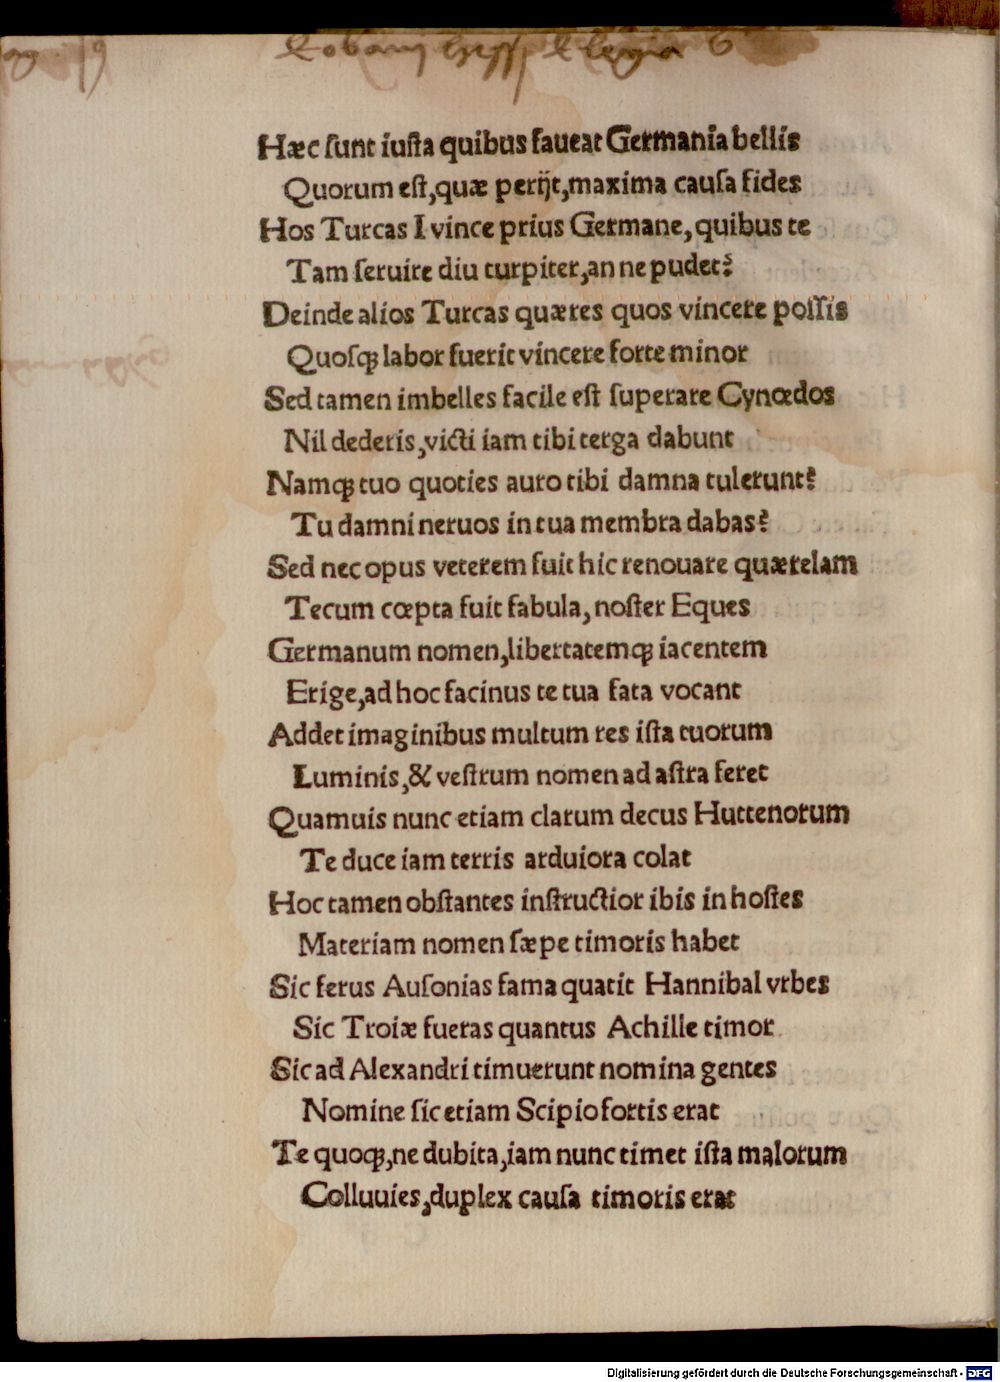 Hæc sunt iusta quibus faueat Germania bellis
Quorum est,quæ perijt,maxima causa fides
Hos Turcas I vince prius Germane, quibus te
Tam seruire diu turpiter,an ne pudet?
Deinde alios Turcas quæres quos vincere possis
Quosqꝫ labor fuerit vincere forte minor
Sed tamen imbelles facile est superare Cynœdos
Nil dederis,victi iam tibi terga dabunt
Namqꝫ tuo quoties auro tibi damna tulerunt?
Tu damni neruos in tua membra dabas?
Sed nec opus veterem fuit hic renouare quærelam
Tecum cœpta fuit fabula, noster Eques
Germanum nomen,libertatemqꝫ iacentem
Erige,ad hoc facinus te tua fata vocant
Addet imaginibus multum res ista tuorum
Luminis,& vestrum nomen ad astra feret
Quamuis nunc etiam clarum decus Huttenorum
Te duce iam terris arduiora colat
Hoc tamen obstantes instructior ibis in hostes
Materiam nomen sæpe timoris habet
Sic ferus Ausonias fama quatit Hannibal vrbes
Sic Troiæ fueras quantus Achille timor
Sic ad Alexandri timuerunt nomina gentes
Nomine sic etiam Scipio fortis erat
Te quoqꝫ,ne dubita,iam nunc timet ista malorum
Colluuies,duplex causa timoris erat
Digitalisierung gefördert durch die Deutsche Forschungsgemeinschaft - DFG